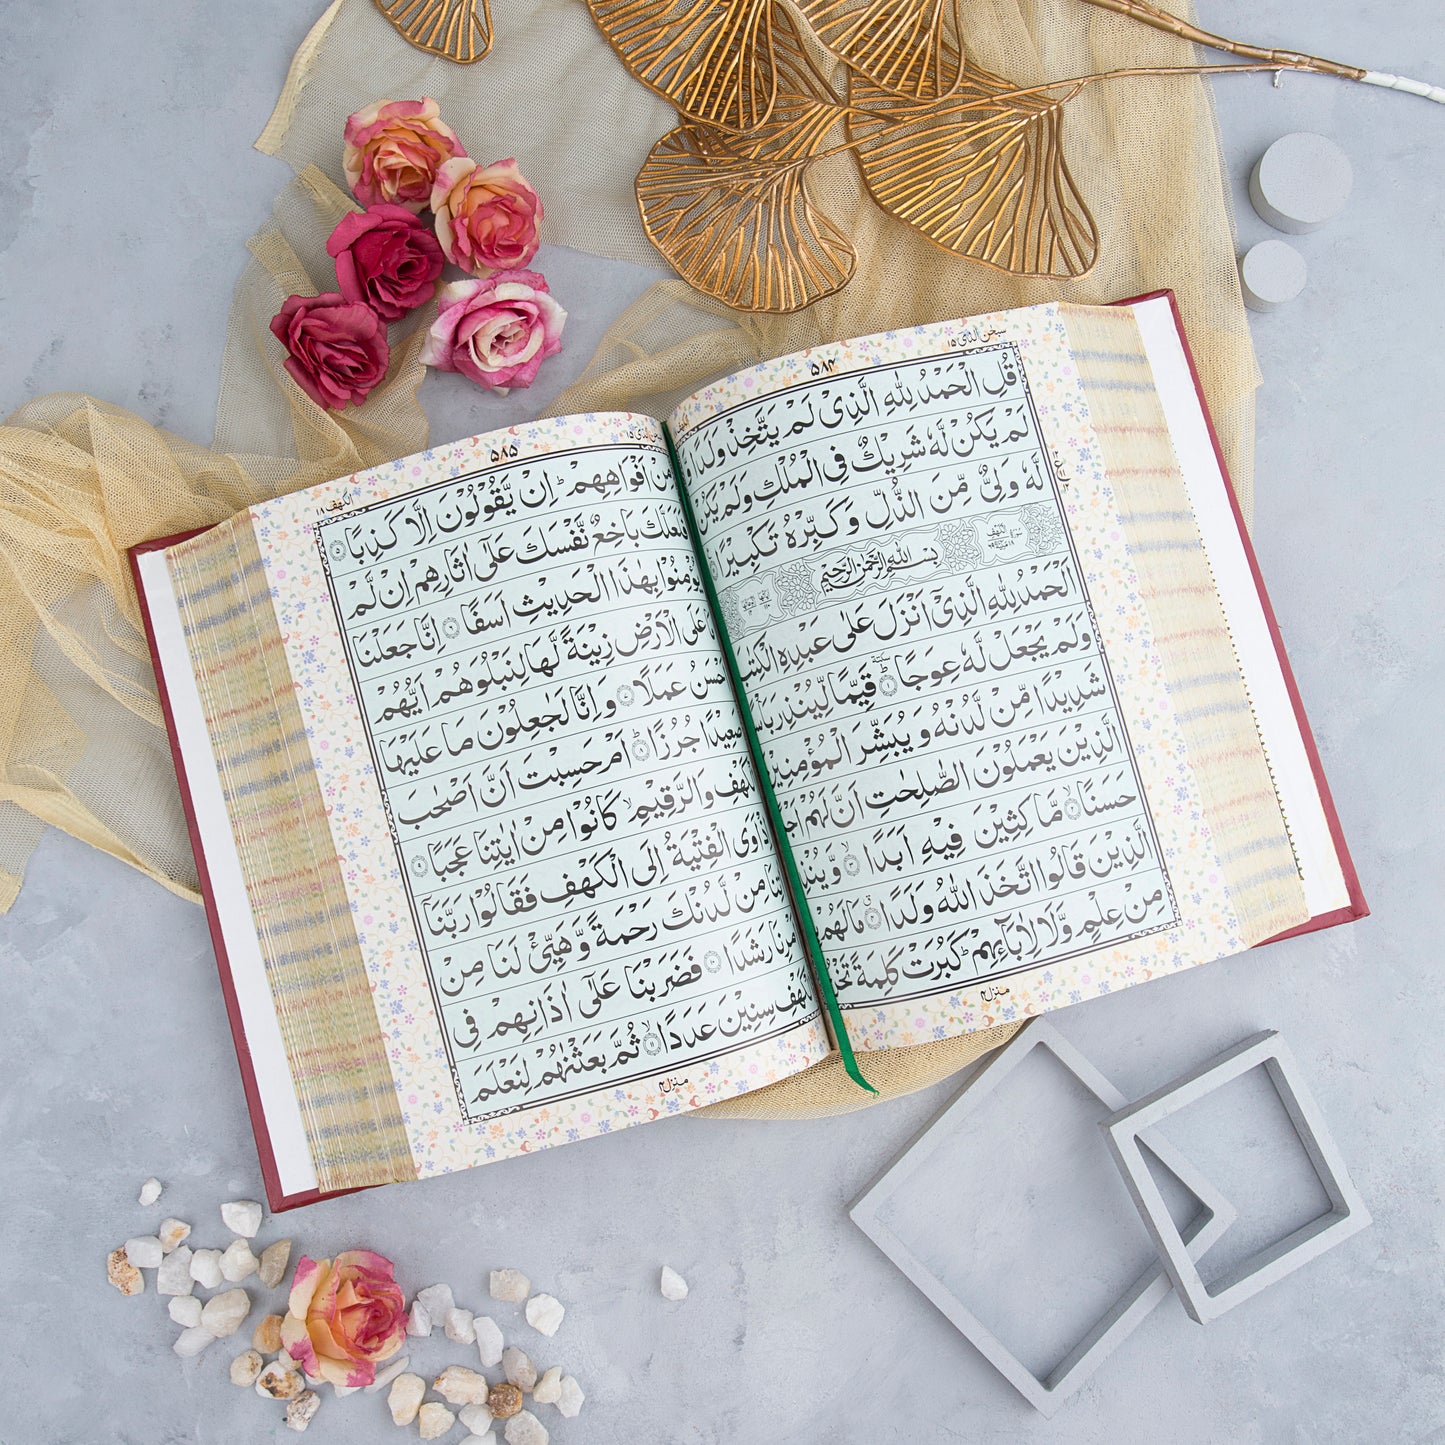 سبحن الذی ۱۵
۵۸۴
قُلِ الْحَمْدُ لِلّٰهِ الَّذِیْ لَمْ یَتَّخِذْ وَلَدًا وَّ
لَمْ یَكُنْ لَّهٗ شَرِیْكٌ فِی الْمُلْكِ وَلَمْ یَكُنْ
لَّهٗ وَلِیٌّ مِّنَ الذُّلِّ وَكَبِّرْهُ تَكْبِیْرًا
بِسْمِ اللّٰهِ الرَّحْمٰنِ الرَّحِیْمِ
اَلْحَمْدُ لِلّٰهِ الَّذِیْۤ اَنْزَلَ عَلٰی عَبْدِهِ الْكِتٰبَ
وَلَمْ یَجْعَلْ لَّهٗ عِوَجًا ۱ قَیِّمًا لِّیُنْذِرَ بَاْسًا
شَدِیْدًا مِّنْ لَّدُنْهُ وَیُبَشِّرَ الْمُؤْمِنِیْنَ
الَّذِیْنَ یَعْمَلُوْنَ الصّٰلِحٰتِ اَنَّ لَهُمْ اَجْرًا
حَسَنًا ۲ مَّاكِثِیْنَ فِیْهِ اَبَدًا ۳ وَّیُنْذِرَ
الَّذِیْنَ قَالُوا اتَّخَذَ اللّٰهُ وَلَدًا ۴ مَا لَهُمْ بِهٖ
مِنْ عِلْمٍ وَّلَا لِاٰبَآئِهِمْ كَبُرَتْ كَلِمَةً تَخْرُجُ
منزل ۴
الكهف ۱۸
۵۸۵
سبحن الذی ۱۵
مِنْ اَفْوَاهِهِمْ اِنْ یَّقُوْلُوْنَ اِلَّا كَذِبًا ۵
فَلَعَلَّكَ بَاخِعٌ نَّفْسَكَ عَلٰۤی اٰثَارِهِمْ اِنْ لَّمْ
یُؤْمِنُوْا بِهٰذَا الْحَدِیْثِ اَسَفًا ۶ اِنَّا جَعَلْنَا
مَا عَلَی الْاَرْضِ زِیْنَةً لَّهَا لِنَبْلُوَهُمْ اَیُّهُمْ
اَحْسَنُ عَمَلًا ۷ وَاِنَّا لَجٰعِلُوْنَ مَا عَلَیْهَا
صَعِیْدًا جُرُزًا ۸ اَمْ حَسِبْتَ اَنَّ اَصْحٰبَ
الْكَهْفِ وَالرَّقِیْمِ كَانُوْا مِنْ اٰیٰتِنَا عَجَبًا ۹
اِذْ اَوَی الْفِتْیَةُ اِلَی الْكَهْفِ فَقَالُوْا رَبَّنَاۤ
اٰتِنَا مِنْ لَّدُنْكَ رَحْمَةً وَّهَیِّئْ لَنَا مِنْ
اَمْرِنَا رَشَدًا ۱۰ فَضَرَبْنَا عَلٰۤی اٰذَانِهِمْ فِی
الْكَهْفِ سِنِیْنَ عَدَدًا ۱۱ ثُمَّ بَعَثْنٰهُمْ لِنَعْلَمَ
منزل ۴